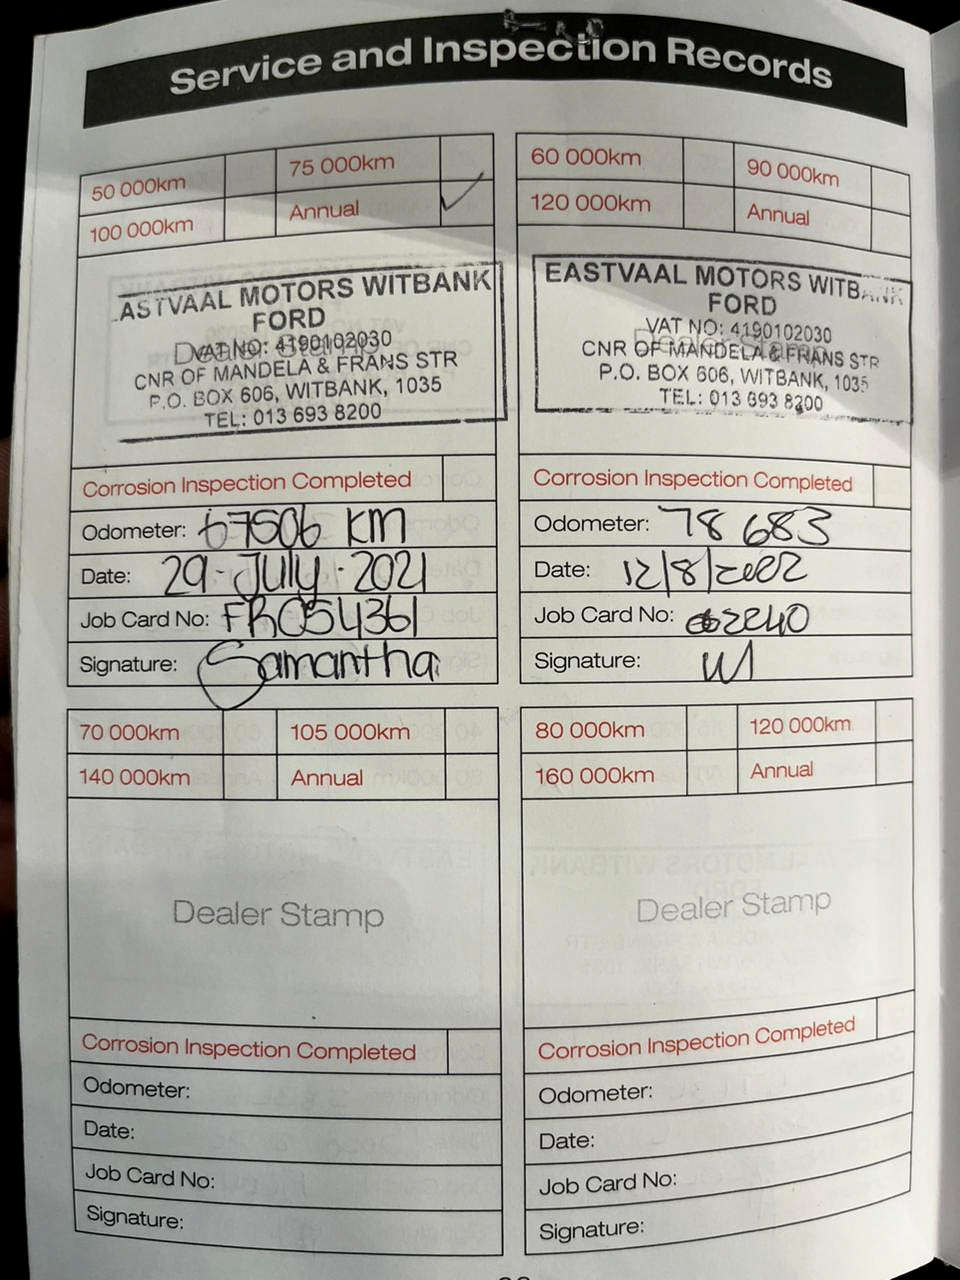 Service and Inspection Records
50 000km 75 000km
100 000km Annual ✓
ASTVAAL MOTORS WITBANK
FORD
Dealer Stamp
VAT NO: 4190102030
CNR OF MANDELA & FRANS STR
P.O. BOX 606, WITBANK, 1035
TEL: 013 693 8200
Corrosion Inspection Completed
Odometer: 67506 KM
Date: 29-July-2021
Job Card No: FRO54361
Signature: Samantha
60 000km 90 000km
120 000km Annual
EASTVAAL MOTORS WITBANK
FORD
Dealer Stamp
VAT NO: 4190102030
CNR OF MANDELA & FRANS STR
P.O. BOX 606, WITBANK, 1035
TEL: 013 693 8200
Corrosion Inspection Completed
Odometer: 78 683
Date: 12/8/2022
Job Card No:
Signature:
70 000km 105 000km
140 000km Annual
Dealer Stamp
Corrosion Inspection Completed
Odometer:
Date:
Job Card No:
Signature:
80 000km 120 000km
160 000km Annual
Dealer Stamp
Corrosion Inspection Completed
Odometer:
Date:
Job Card No:
Signature: